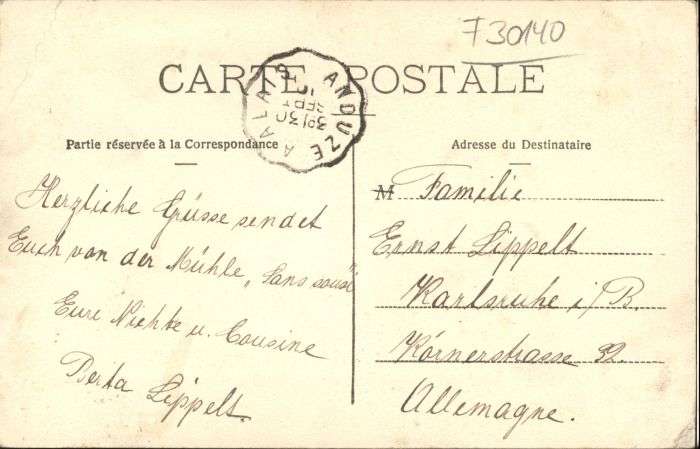 F30140
CARTE POSTALE
ANDUZE A ALAIS
3º 30
SEPT
Partie réservée à la Correspondance
Adresse du Destinataire
Herzliche Grüsse sendet
Euch von der Mühle „Sans souci"
Eure Nichte u. Cousine
Berta Lippelt.
M Familie
Ernst Lippelt
Karlsruhe i/B.
Körnerstrasse 32.
Allemagne.